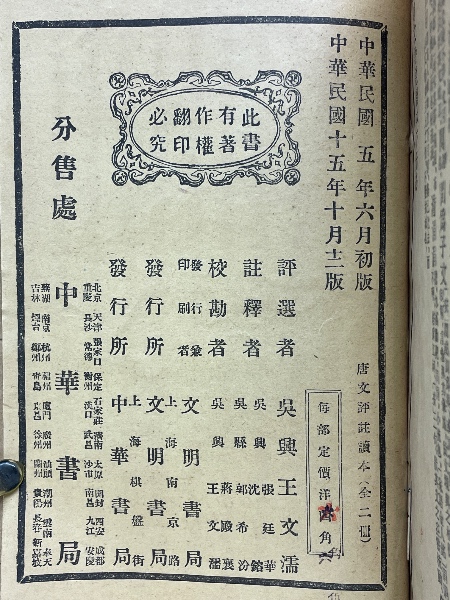 中華民國五年六月初版
中華民國十五年十月十二版
唐文評註讀本（全二冊）
每部定價洋四角六
此書
有著
作權
翻印
必究
評選者 吳興王文濡
註釋者 吳興沈鎔 張廷華
校勘者 吳興蔣殿襄 吳縣郭希汾
吳興王文濡
印刷者
發行兼
文明書局
發行所
上海南京路
文明書局
發行所
上海棋盤街
中華書局
分售處
北京 天津 張家口 保定 石家莊 濟南 太原 開封 西安 成都
重慶 長沙 常德 衡州 漢口 武昌 沙市 南昌 九江 安慶
中華書局
蕪湖 南京 杭州 福州 廈門 廣州 汕頭 潮州 雲南 奉天
吉林 煙台 鄭州 青島 徐州 蘭州 貴陽 長春 新嘉坡